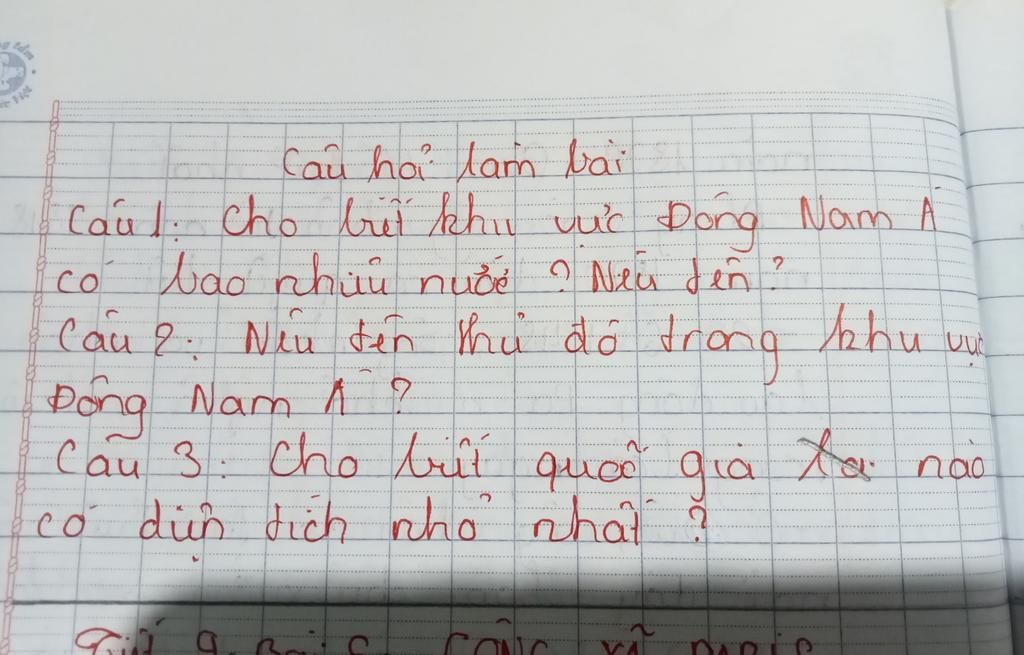 Câu hỏi làm bài
Câu 1: Cho biết khu vực Đông Nam Á
có bao nhiêu nước ? Nêu tên ?
Câu 2: Nêu tên thủ đô trong khu vực
Đông Nam Á ?
Câu 3: Cho biết quốc gia nào
có diện tích nhỏ nhất ?